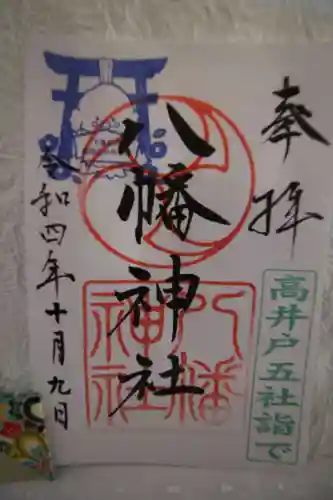 奉拝
八幡神社
八幡神社
令和四年十月九日
高井戸五社詣で